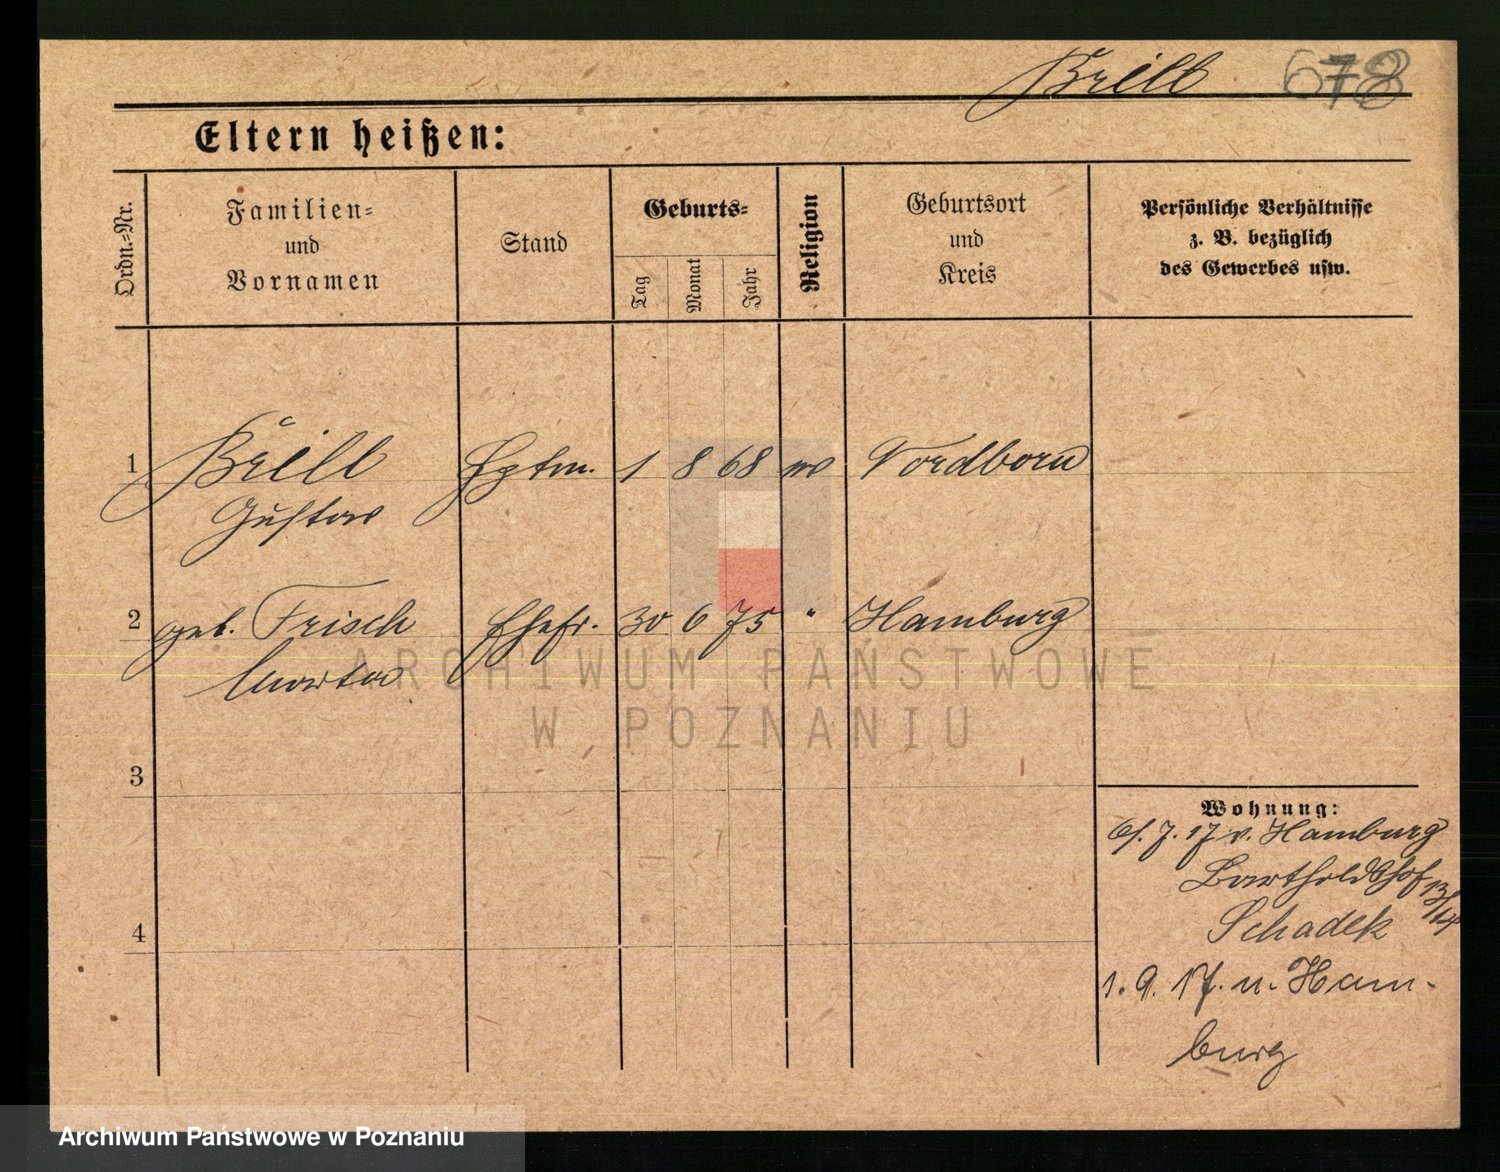 Brill 678
Eltern heißen:
Ordn.=Nr.
Familien=
und
Vornamen
Stand
Geburts=
Tag
Monat
Jahr
Religion
Geburtsort
und
Kreis
Persönliche Verhältnisse
z. B. bezüglich
des Gewerbes usw.
1 Brill Hptm. 1 8 68 Nordborn
Gustav
2 geb. Frisch Ehefr. 30 6 75 " Hamburg
Marta
ARCHIWUM PAŃSTWOWE
W POZNANIU
3
Wohnung:
6/. 7. 17 v. Hamburg
Schadek
4
1. 9. 17. n. Ham-
burg
Archiwum Państwowe w Poznaniu